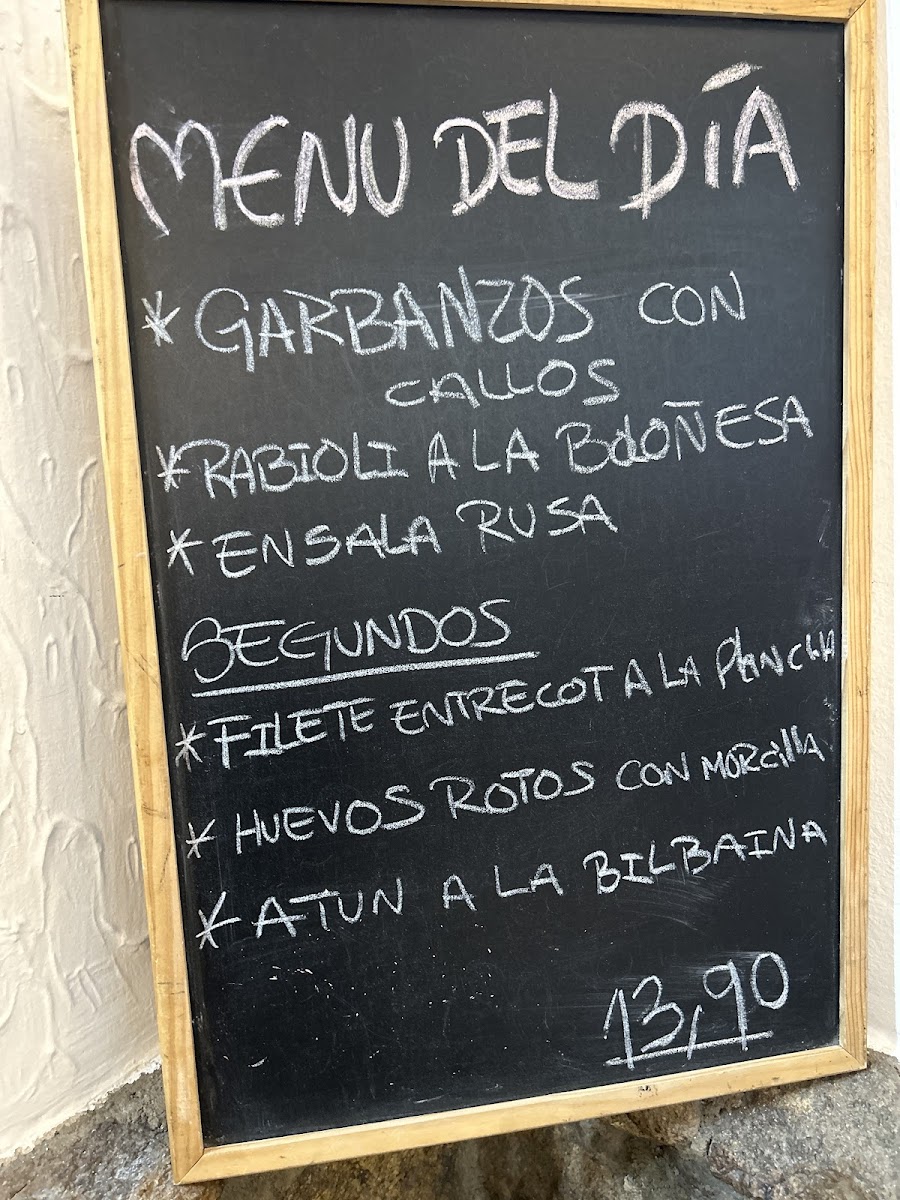 MENU DEL DÍA
* GARBANZOS CON
CALLOS
* RABIOLI A LA BOLOÑESA
* ENSALA RUSA
SEGUNDOS
* FILETE ENTRECOT A LA PLANCHA
* HUEVOS ROTOS CON MORCILLA
* ATUN A LA BILBAINA
13,90